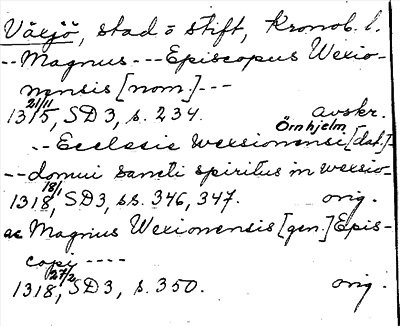 Växjö, stad o stift, Kronob. l.
-- Magnus --- Episcopus Wexio-
nensis [nom.] ---
1315 21/11, SD 3, s. 234. avskr.
Örnhjelm
-- Ecclesie wexsionensi [dat.] -
-- domui sancti spiritus in wexsio-
1318 18/1, SD 3, ss. 346, 347. orig.
ac Magnus Wexionensis [gen.] Epis-
copi ----
1318 27/2, SD 3, s. 350. orig.